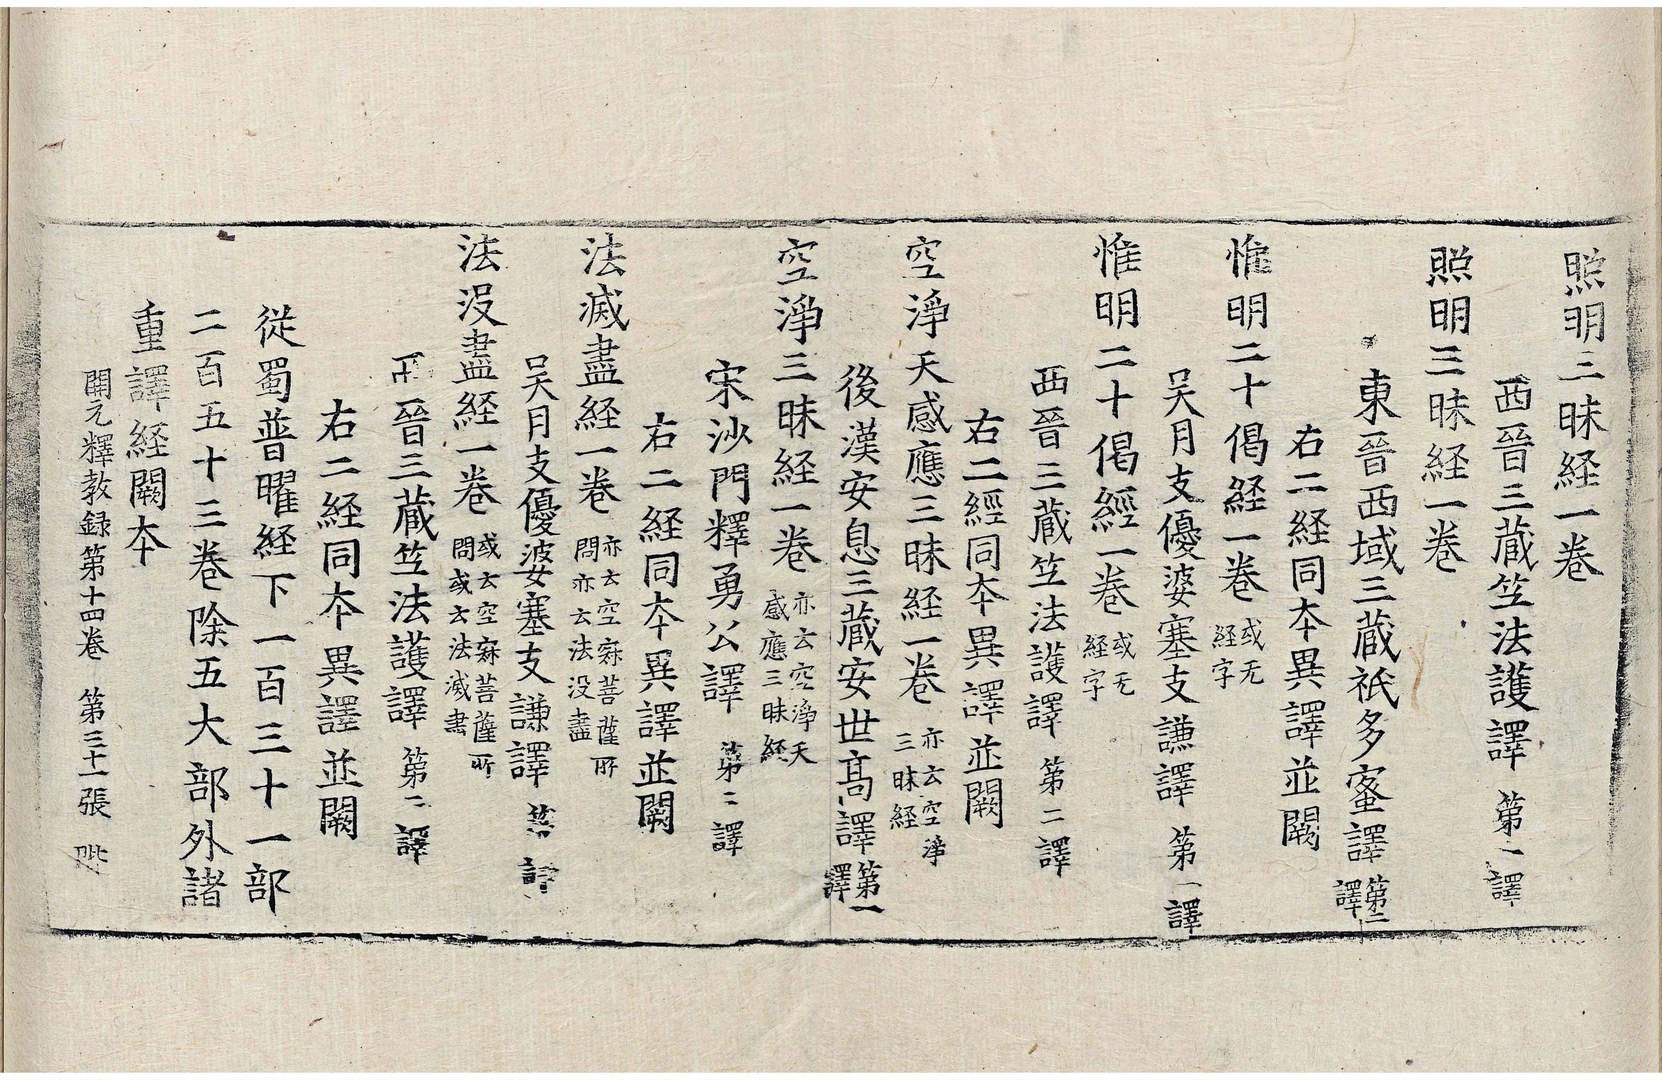 照明三昧経一卷
西晉三蔵笁法護譯 第一譯
照明三昧経一卷
東晉西域三蔵祇多蜜譯 第二譯
右二経同本異譯並闕
惟明二十偈経一卷 或无経字
吴月支優婆塞支謙譯 第一譯
惟明二十偈經一卷 或无経字
西晉三蔵笁法護譯 第二譯
右二經同本異譯並闕
空淨天感應三昧経一卷 亦云空淨三昧経
後漢安息三蔵安世高譯 第一譯
空淨三昧経一卷 亦云空淨天感應三昧経
宋沙門釋勇公譯 第二譯
右二経同本異譯並闕
法滅盡経一卷 亦云空寐菩薩所問亦云法没盡
吴月支優婆塞支謙譯 第一譯
法没盡経一卷 或云空寐菩薩所問或云法滅盡
西晉三蔵笁法護譯 第二譯
右二経同本異譯並闕
從蜀普曜経下一百三十一部
二百五十三卷除五大部外諸
重譯経闕本
開元釋教録第十四卷 第三十一張